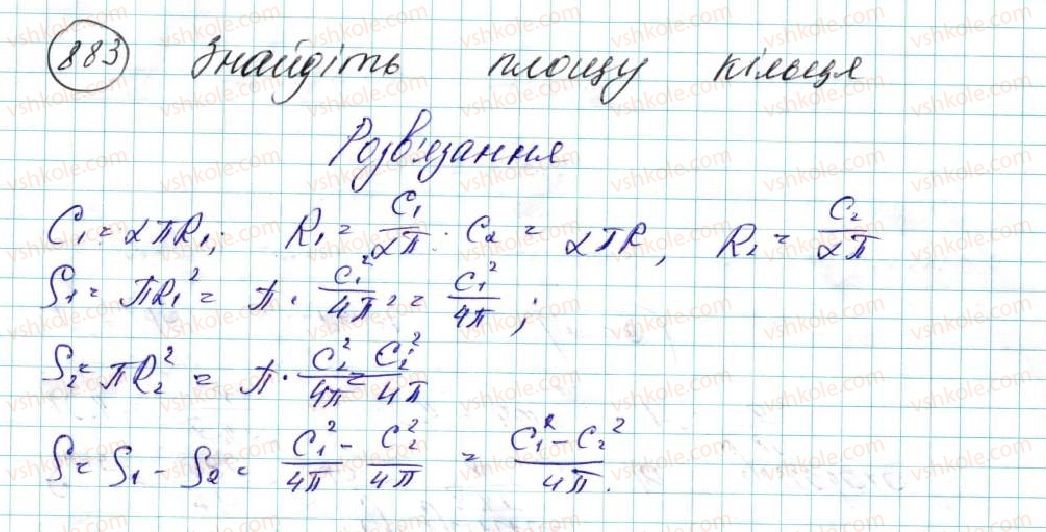 883 Знайдіть площу кільця
Розв'язання
C₁ = 2πR₁; R₁ = C₁/2π · C₂ = 2πR, R₂ = C₂/2π
S₁ = πR₁² = π · C₁²/4π² = C₁²/4π ;
S₂ = πR₂² = π · C₂²/4π² = C₂²/4π
S = S₁ - S₂ = C₁²/4π - C₂²/4π = C₁² - C₂²/4π.